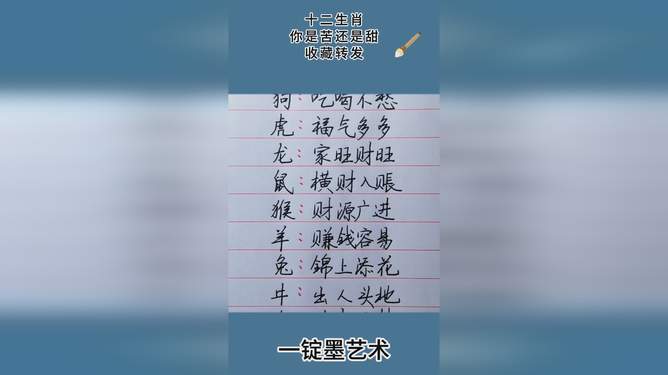 十二生肖
你是苦还是甜
收藏转发
狗：吃喝不愁
虎：福气多多
龙：家旺财旺
鼠：横财入账
猴：财源广进
羊：赚钱容易
兔：錦上添花
牛：出人头地
一锭墨艺术